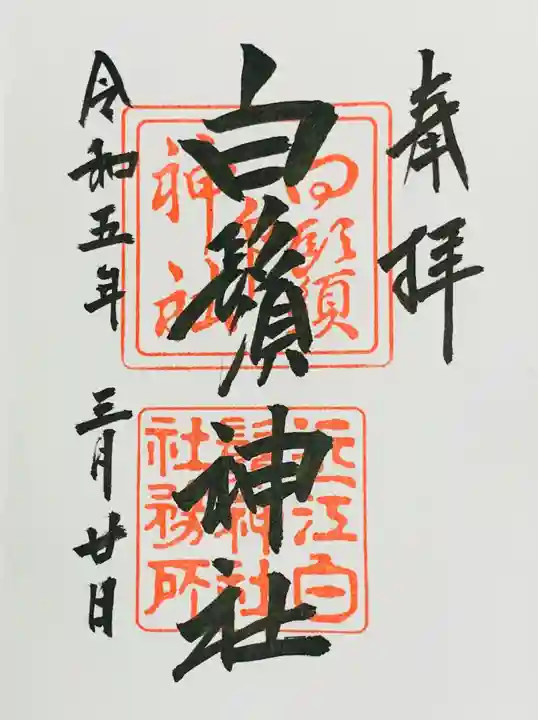 奉拝
白鬚神社
近江白
鬚神社
社務所
令和五年 三月廿日